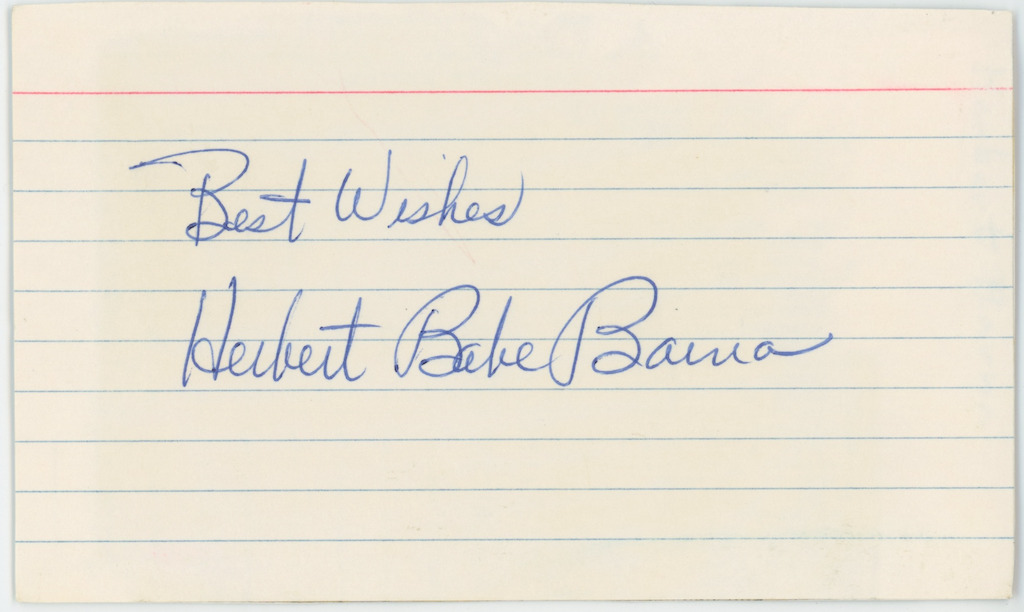 Best Wishes
Herbert Babe Barna